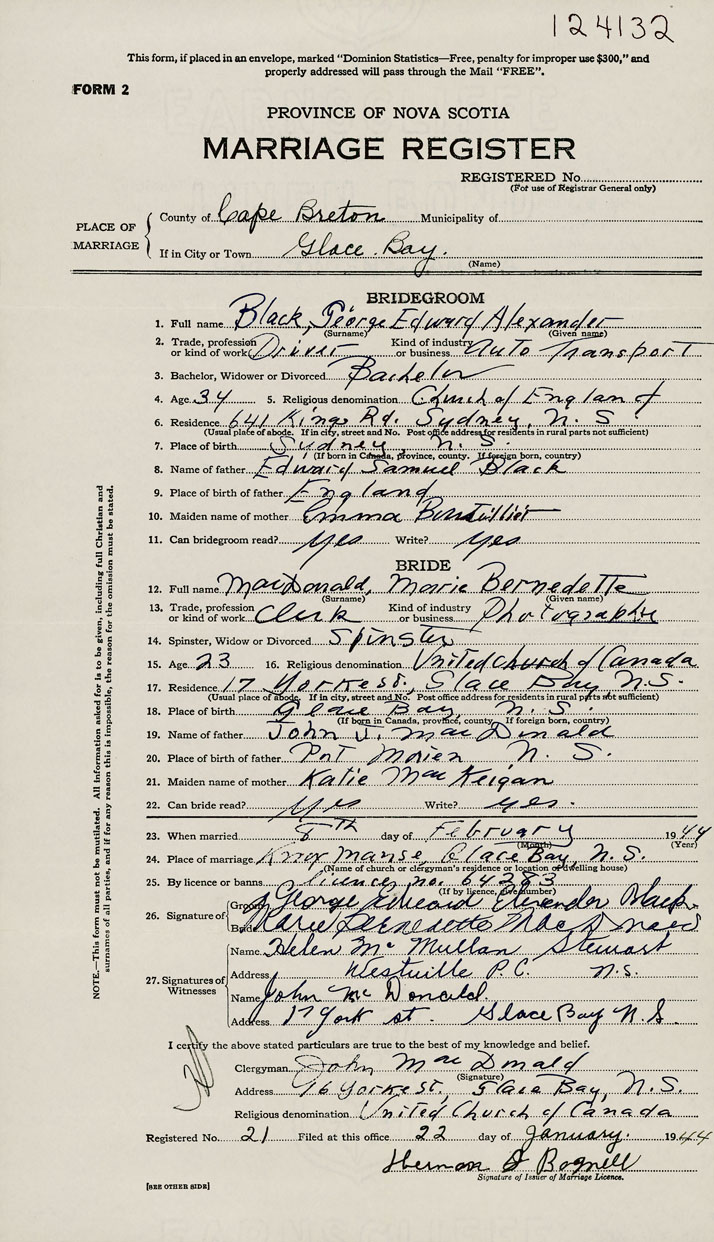 124132
This form, if placed in an envelope, marked "Dominion Statistics—Free, penalty for improper use $300," and
properly addressed will pass through the Mail "FREE".
FORM 2
PROVINCE OF NOVA SCOTIA
MARRIAGE REGISTER
REGISTERED No.
(For use of Registrar General only)
PLACE OF MARRIAGE
County of Cape Breton Municipality of
If in City or Town Glace Bay.
(Name)
BRIDEGROOM
1. Full name Black, George Edward Alexander
(Surname) (Given name)
2. Trade, profession or kind of work Driver Kind of industry or business Auto Transport
3. Bachelor, Widower or Divorced Bachelor
4. Age 34 5. Religious denomination Church of England
6. Residence 641 Kings Rd. Sydney, N. S
(Usual place of abode. If in city, street and No. Post office address for residents in rural parts not sufficient)
7. Place of birth Sydney, N. S.
(If born in Canada, province, county. If foreign born, country)
8. Name of father Edward Samuel Black
9. Place of birth of father England
10. Maiden name of mother Emma
11. Can bridegroom read? Yes Write? Yes
BRIDE
12. Full name MacDonald, Marie Bernedette
(Surname) (Given name)
13. Trade, profession or kind of work Clerk Kind of industry or business
14. Spinster, Widow or Divorced Spinster
15. Age 23 16. Religious denomination United Church of Canada
17. Residence 17 York st., Glace Bay N.S.
(Usual place of abode. If in city, street and No. Post office address for residents in rural parts not sufficient)
18. Place of birth Glace Bay N. S.
(If born in Canada, province, county. If foreign born, country)
19. Name of father John J. MacDonald
20. Place of birth of father Port Morien N. S.
21. Maiden name of mother Katie MacKeigan
22. Can bride read? Yes Write? Yes.
23. When married 8th day of February 1944
(Month) (Year)
24. Place of marriage Knox Manse, Glace Bay, N. S.
(Name of church or clergyman's residence or location of dwelling house)
25. By licence or banns licence, no. 64383
(If by licence, give number)
26. Signature of
Groom George Edward Black
Bride Marie Bernedette MacDonald
27. Signatures of Witnesses
Name Helen McMullan Stewart
Address Westville P.C. N.S.
Name John McDonald.
Address 17 York st. Glace Bay N.S.
I certify the above stated particulars are true to the best of my knowledge and belief.
Clergyman John MacDonald
(Signature)
Address 76 York st., Glace Bay, N.S.
Religious denomination United Church of Canada
Registered No. 21 Filed at this office 22 day of January. 1944
Herman Bagnell
Signature of Issuer of Marriage Licence.
[SEE OTHER SIDE]
NOTE.—This form must not be mutilated. All information asked for is to be given, including full Christian and
surnames of all parties, and if for any reason this is impossible, the reason for the omission must be stated.